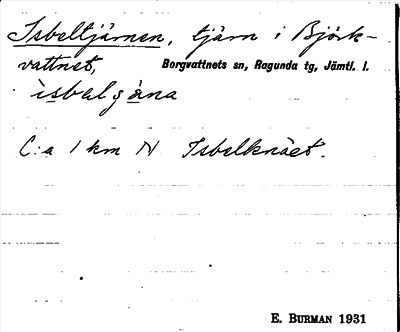 Isbeltjärnen, tjärn i Björk-
vattnet, Borgvattnets sn, Ragunda tg, Jämtl. l.
C:a 1 km N Isbelknäet.
E. BURMAN 1931